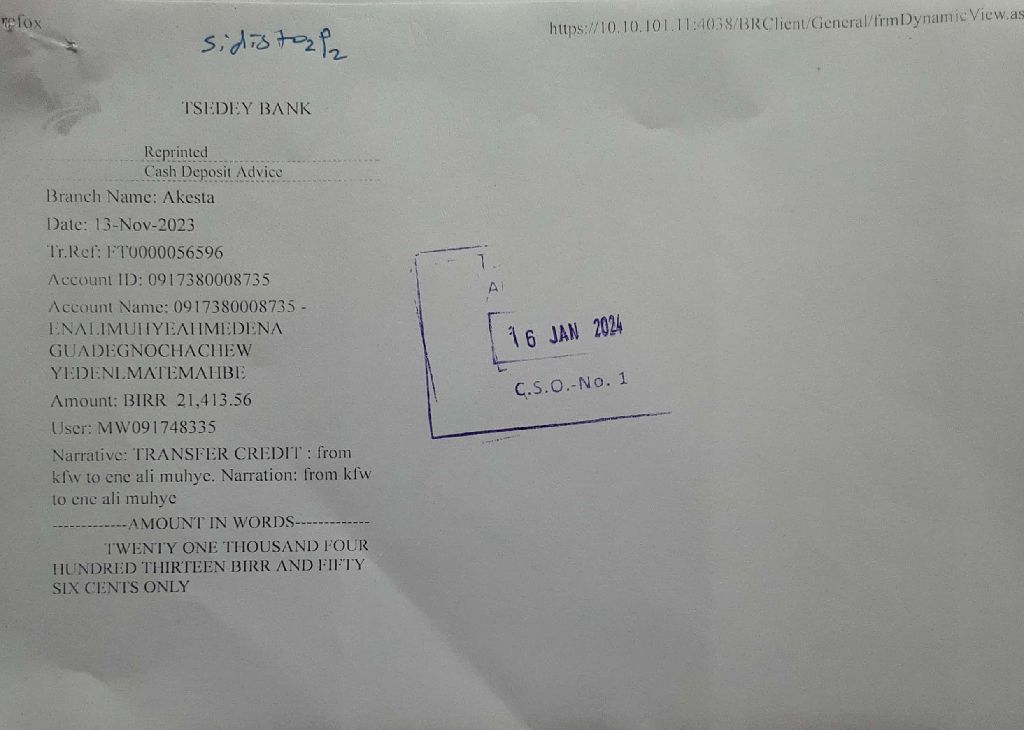 refox
https://10.10.101.11:4038/BRClient/General/frmDynamicView.as
TSEDEY BANK
Reprinted
Cash Deposit Advice
Branch Name: Akesta
Date: 13-Nov-2023
Tr.Ref: FT0000056596
Account ID: 0917380008735
Account Name: 0917380008735 -
ENALIMUHYEAHMEDENA
GUADEGNOCHACHEW
YEDENI.MATEMAHBE
Amount: BIRR 21,413.56
User: MW091748335
Narrative: TRANSFER CREDIT : from
kfw to ene ali muhye. Narration: from kfw
to ene ali muhye
-------------AMOUNT IN WORDS-------------
TWENTY ONE THOUSAND FOUR
HUNDRED THIRTEEN BIRR AND FIFTY
SIX CENTS ONLY
16 JAN 2024
C.S.O.-No. 1